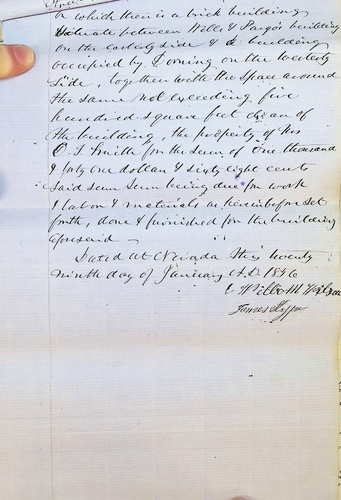 on which there is a brick building,
situate between Wells & Fargo's building
on the easterly side & building
occupied by Dorning on the westerly
side, together with the space around
the same not exceeding five
hundred square feet clear of
the building, the property of
O. T. Smith for the sum of One thousand
& forty one dollar & sixty eight cents
said sum being due for work
& labor & materials as hereinbefore set
forth, done & furnished for the building
aforesaid
Dated at Nevada this twenty
ninth day of January A.D. 1856
James